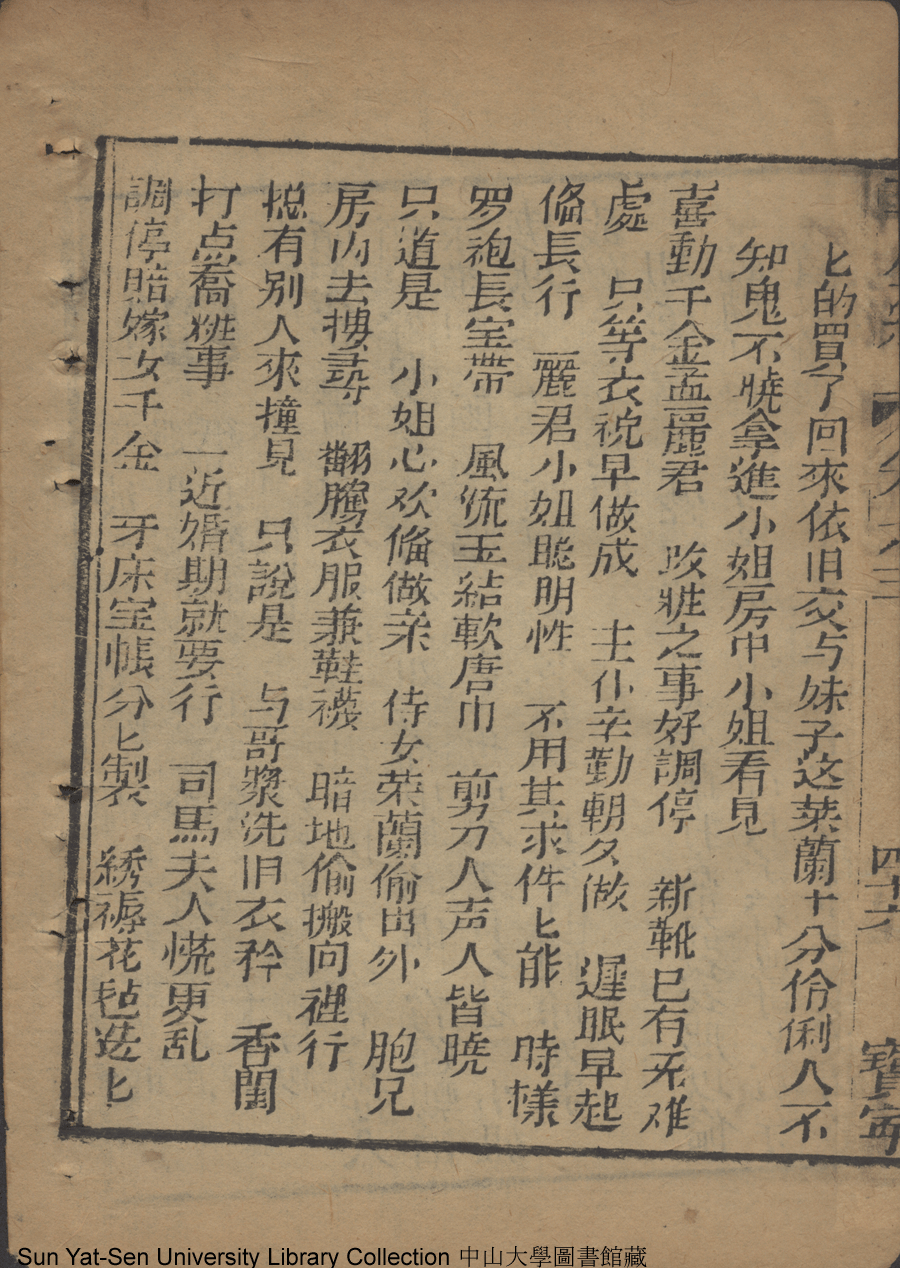 四十六
寳寧
匕的買了回來依旧交与妹子这荣蘭十分伶俐人不
知鬼不曉拿進小姐房中小姐看見
喜動千金孟麗君 改粧之事好調停 新靴已有不难
處 只等衣裞早做成 主仆辛勤朝夕做 遲眠早起
俻長行 麗君小姐聪明性 不用其求件匕能 時樣
罗袍長宝帶 風流玉結軟唐巾 剪刀人声人皆曉
只道是 小姐心欢俻做亲 侍女荣蘭偷出外 胞兄
房内去摟尋 翻騰衣服兼鞋襪 暗地偷搬向裡行
捴有别人來撞見 只說是 与哥漿洗旧衣衿 香閨
打点喬粧事 一近婚期就要行 司馬夫人慌更乱
調停賠嫁女千金 牙床宝帳分匕製 綉褥花毡迭匕
Sun Yat-Sen University Library Collection 中山大學圖書館藏